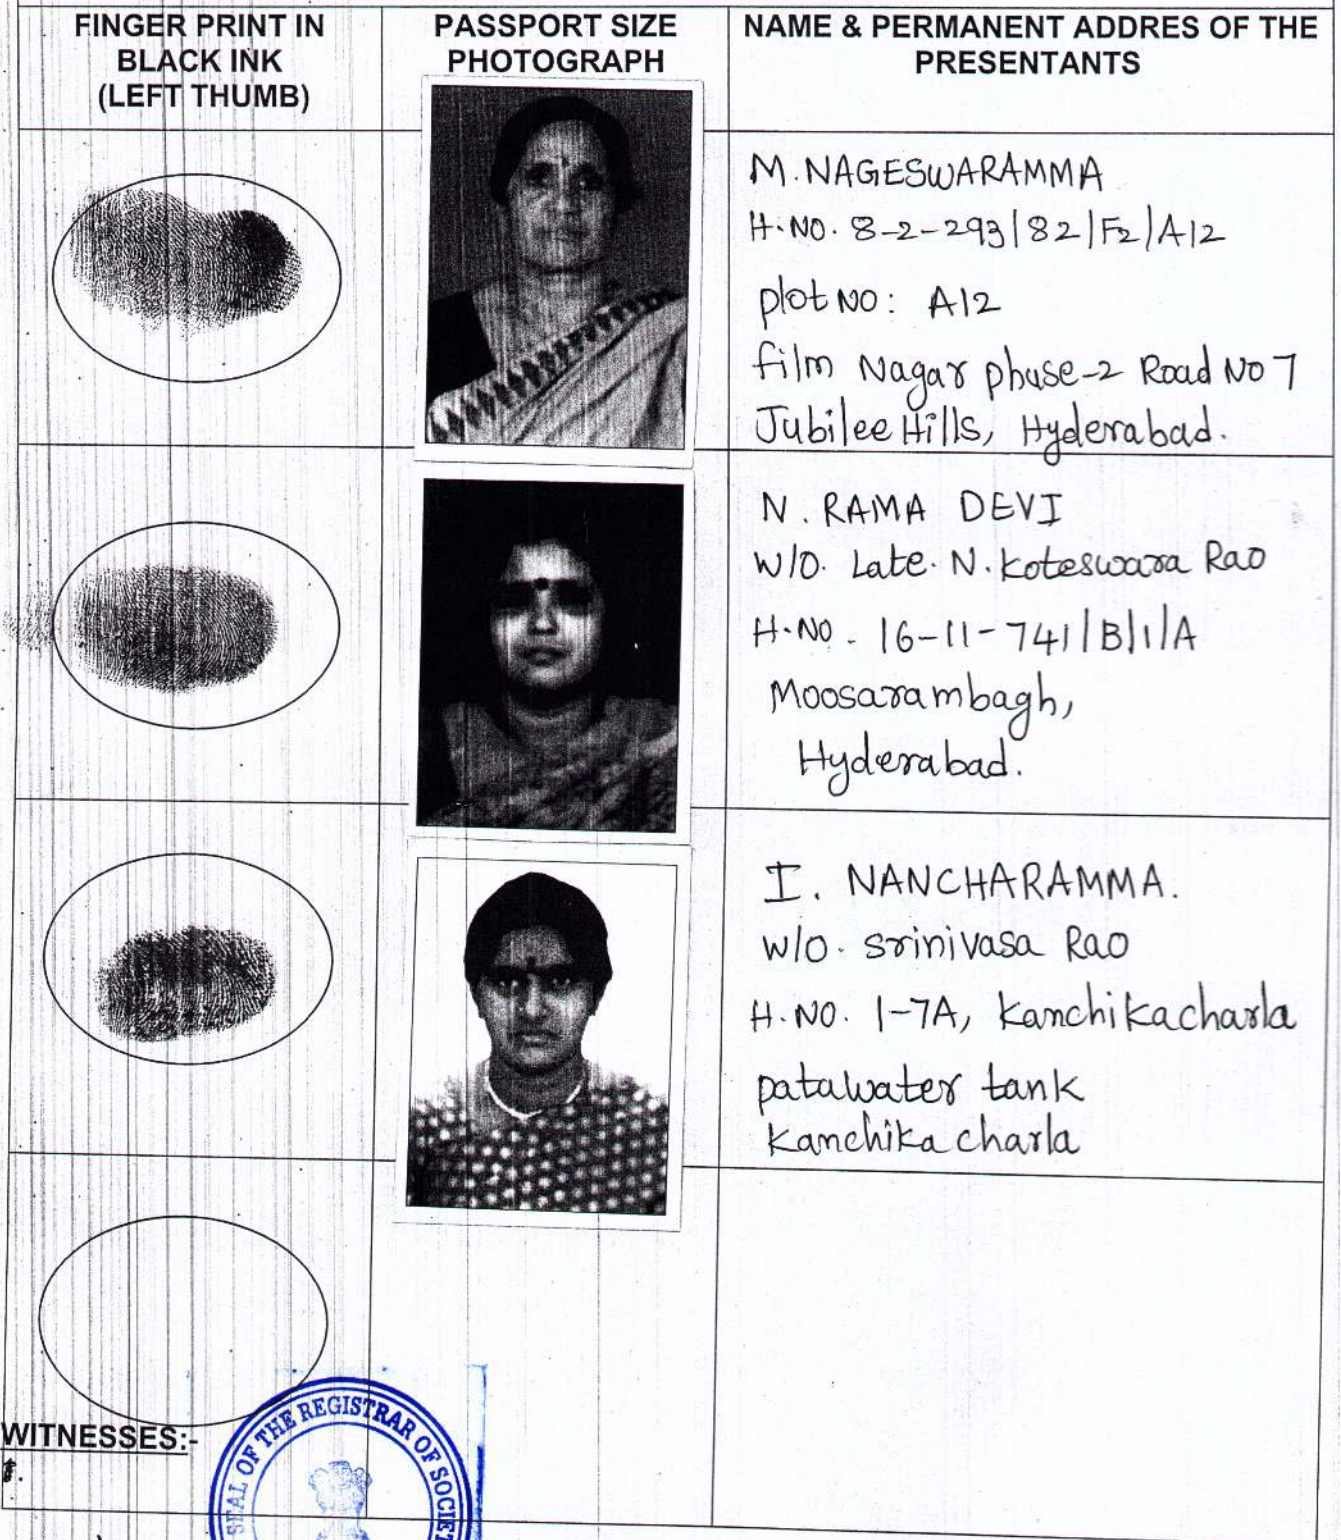 FINGER PRINT IN
BLACK INK
(LEFT THUMB)
PASSPORT SIZE
PHOTOGRAPH
NAME & PERMANENT ADDRES OF THE
PRESENTANTS
M. NAGESWARAMMA
H.NO. 8-2-293|82|F2|A12
plot NO: A12
film Nagar phase-2 Road No 7
Jubilee Hills, Hyderabad.
N. RAMA DEVI
W/O. Late. N. Koteswara Rao
H.NO. 16-11-741|B|1|A
Moosarambagh,
Hyderabad.
I. NANCHARAMMA.
W/O. Srinivasa Rao
H.NO. 1-7A, Kanchikacharla
patawater tank
Kanchikacharla
WITNESSES:-
1.
SEAL OF THE REGISTRAR OF SOCIET